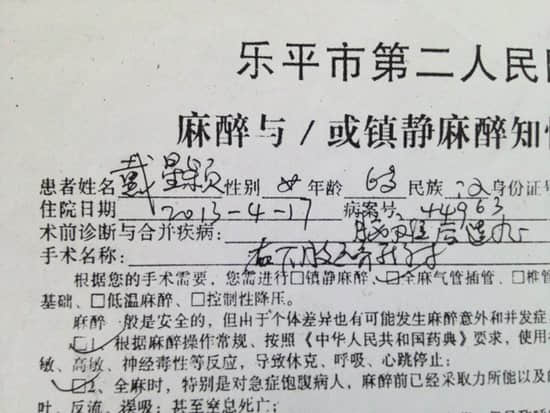 乐平市第二人民
麻醉与/或镇静麻醉知
患者姓名 戴星颖 性别 女 年龄 6岁 民族 汉 身份证号
住院日期 2013-4-17 病案号 44963
术前诊断与合并疾病:
手术名称: 右下肢
根据您的手术需要,您需进行□镇静麻醉、□全麻气管插管、□椎管
基础、□低温麻醉、□控制性降压。
麻醉一般是安全的,但由于个体差异也有可能发生麻醉意外和并发症
□1、根据麻醉操作常规、按照《中华人民共和国药典》要求,使用
敏、高敏、神经毒性等反应,导致休克、呼吸、心跳停止;
□2、全麻时,特别是对急症饱腹病人,麻醉前已经采取力所能以及
吐、反流、误吸;甚至窒息死亡;